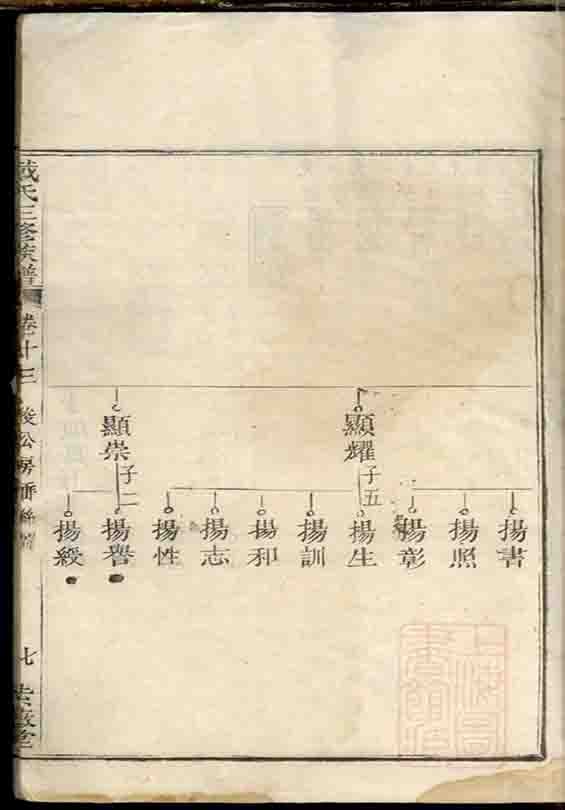 顯耀
子五
顯崇
子二
揚書
揚照
揚彰
揚生
揚訓
揚和
揚志
揚性
揚譽
揚綬
戴氏三修族譜
卷十三
七
紫薇堂